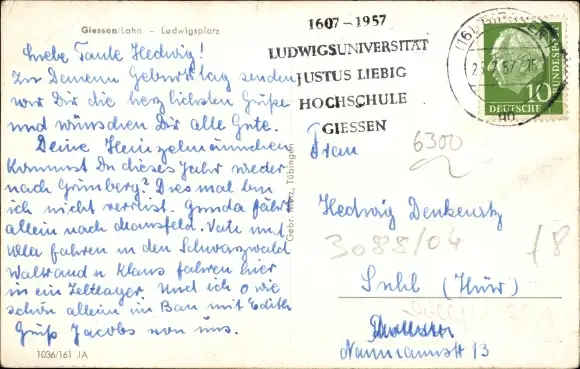 Giessen/Lahn – Ludwigsplatz
Liebe Tante Hedwig!
Zu Deinem Geburtstag senden
wir Dir die herzlichsten Grüße
und wünschen Dir alle Gute.
Deine Heinzelmännchen
Kommst Du dieses Jahr wieder
nach Grünberg? Diesmal bin
ich nicht verreist. Gunda fährt
allein nach Mansfeld. Vati und
fahren in den Schwarzwald
Waltraud u Klaus fahren hier
in ein Zeltlager und ich o wie
schön allein im Bau mit Edith
Gruß Jacobs von uns.
1036/161 JA
Gebr. Metz, Tübingen
1607–1957
LUDWIGSUNIVERSITÄT
JUSTUS LIEBIG
HOCHSCHULE
GIESSEN
(16) GIESSEN
10
DEUTSCHE
Frau
6300
Hedwig
3088/04
18
Suhl (Thür)
Naumannstr 13